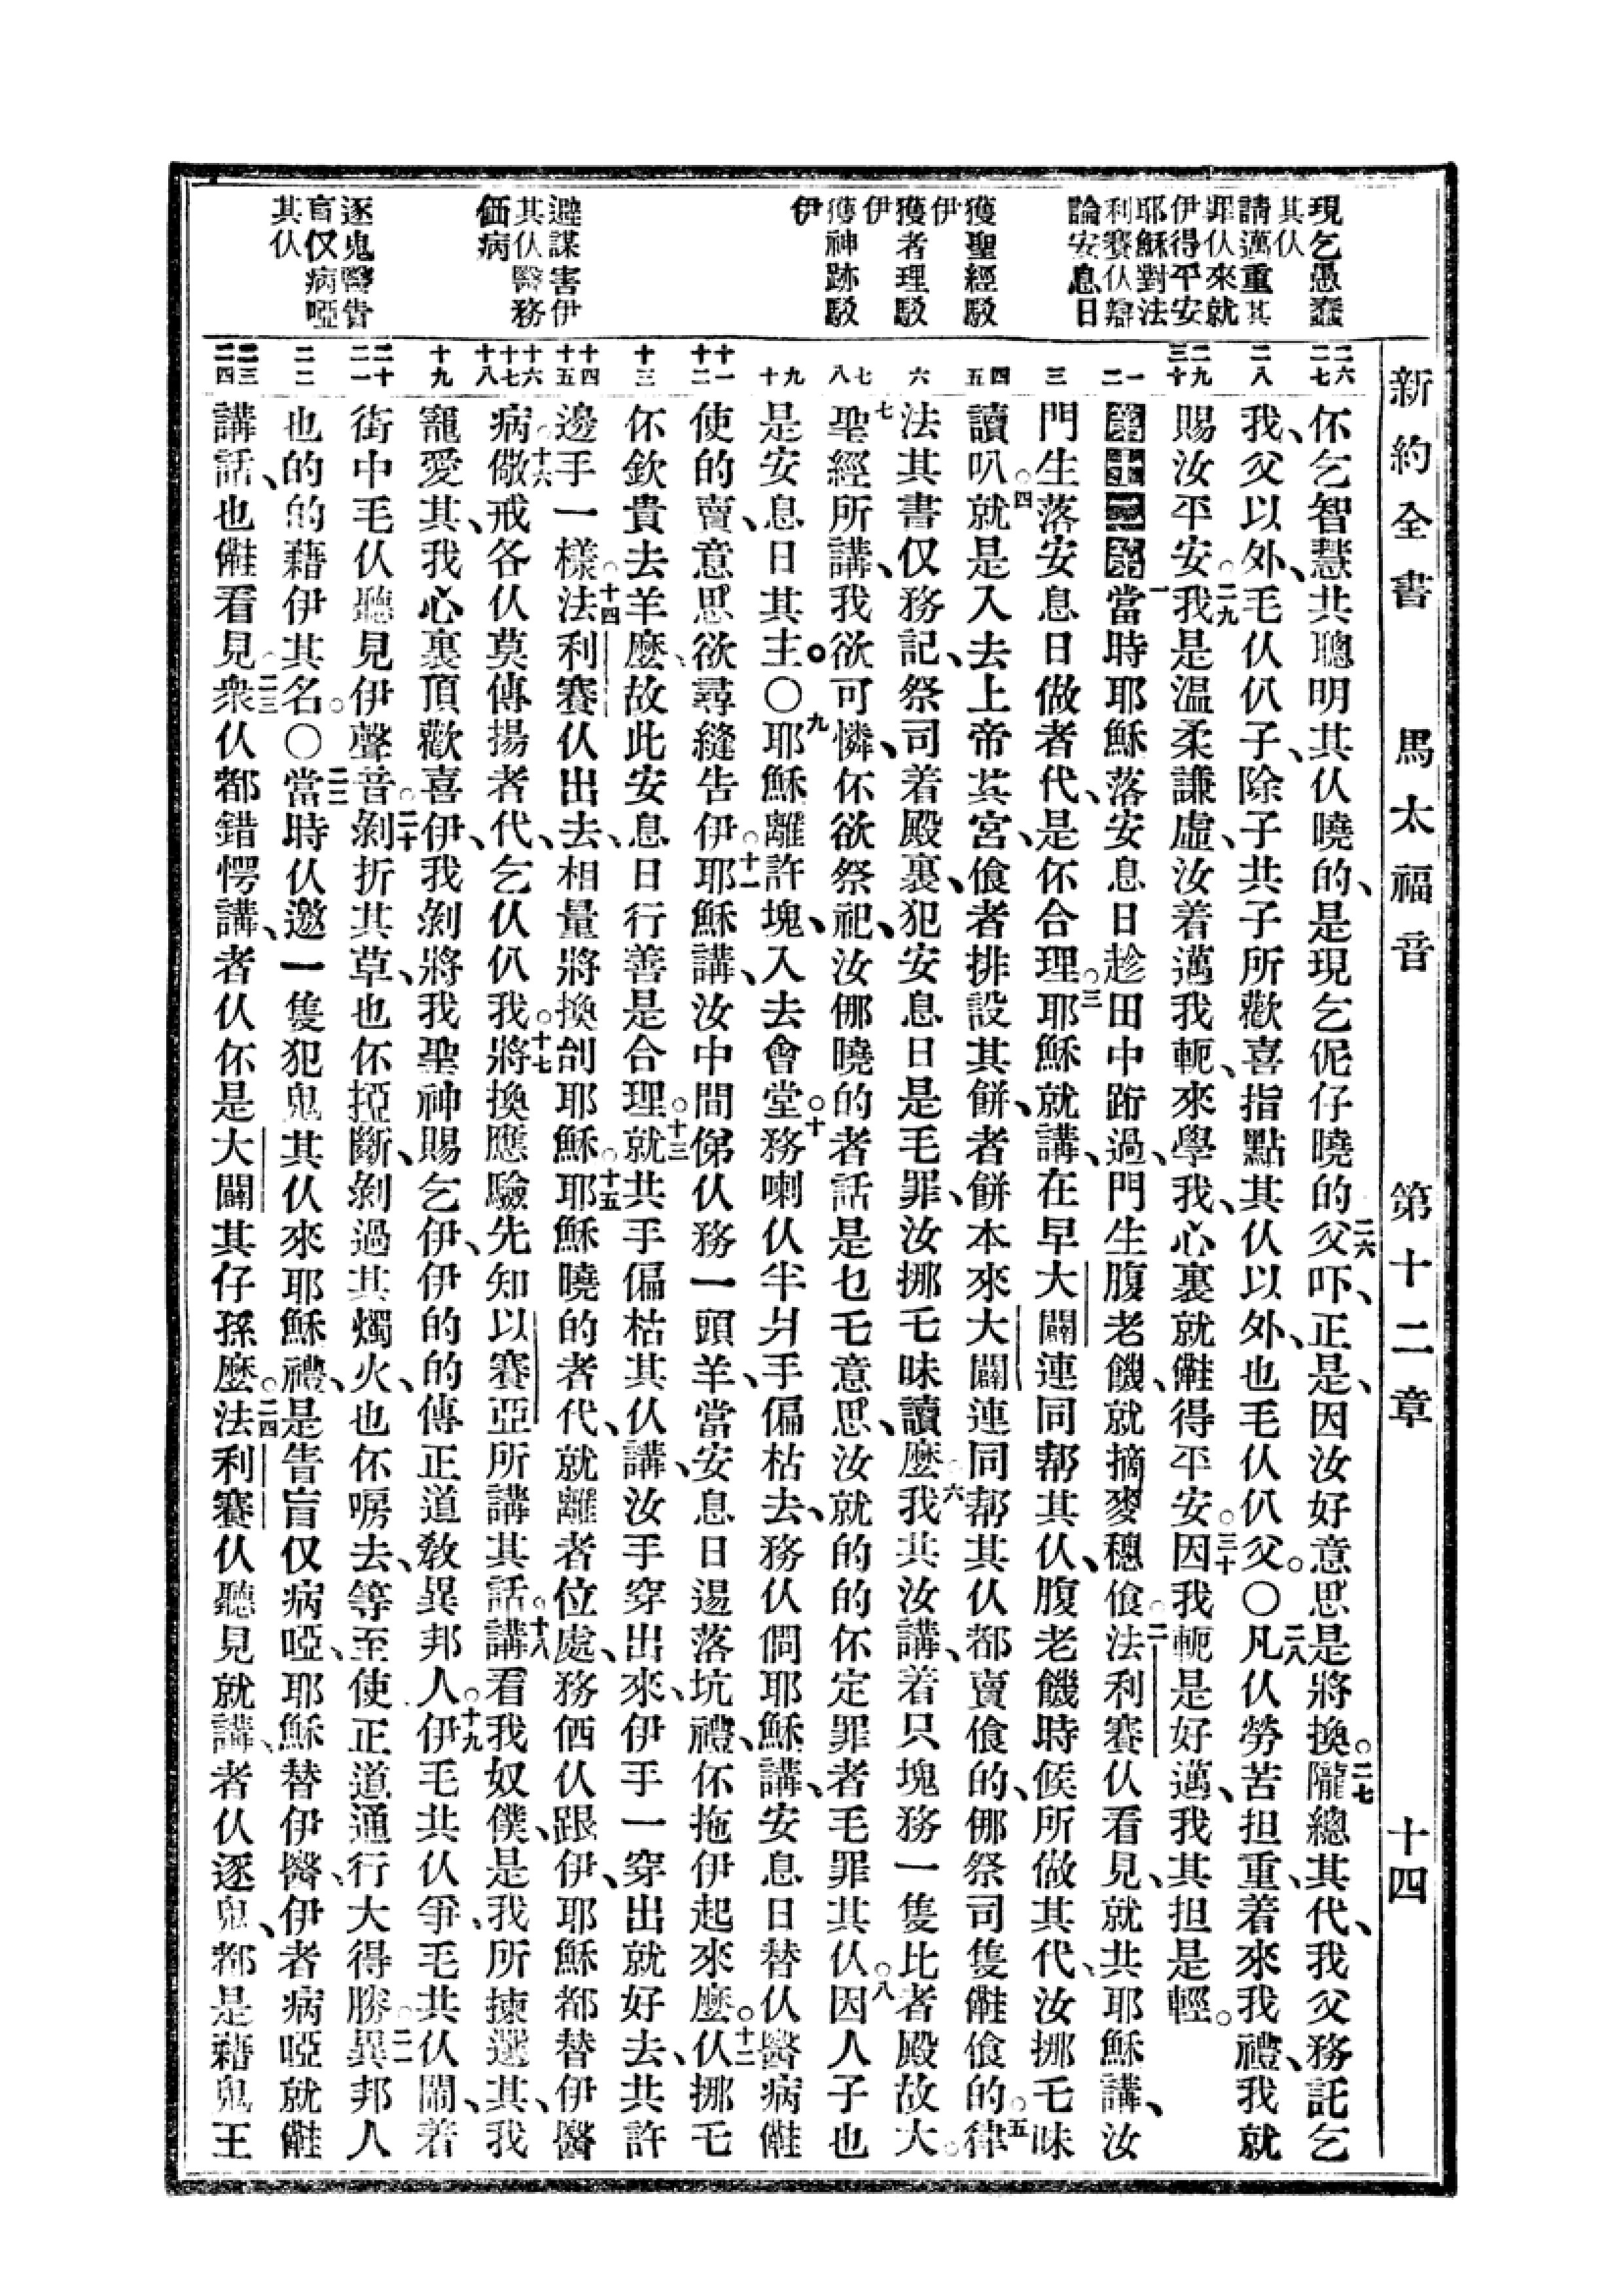 新約全書 馬太福音 第十二章 十四
現乞愚蠢
其仸
請邁重其
罪仸來就
伊得平安
耶穌對法
利賽仸辯
論安息日
獲聖經駁
伊
獲者理駁
伊
獲神跡駁
伊
避謀害伊
其仸醫務
価病
逐鬼醫眚
盲仅病啞
其仸
二六 二七 伓乞智慧共聰明其仸曉的、是現乞伲仔曉的二六父吓、正是、因汝好意思是將換○二七隴總其代、我父務託乞
二八 我、父以外、毛仸仈子、除子共子所歡喜指點其仸以外、也毛仸仈父。○二八凡仸勞苦担重、着來我禮、我就
二九 三十 賜汝平安○二九我是温柔謙虛、汝着邁我軛、來學我、心裏就儺得平安○三十因我軛是好邁、我其担是輕。
一 二 第十二章一當時耶穌落安息日趁田中跻過、門生腹老饑、就摘麥穗飧○二法利賽仸看見、就共耶穌講、汝
三 門生落安息日做者代、是伓合理○三耶穌就講、在早大闢連同帮其仸、腹老饑時候所做其代、汝挪乇昧
四 五 讀叭○四就是入去上帝其宮、飧者排設其餅、者餅本來大闢連同帮其仸都賣飧的、㑚祭司隻儺飧的○五律
六 法其書仅務記、祭司着殿裏、犯安息日是毛罪、汝挪乇昧讀麽○六我共汝講、着只塊務一隻比者殿故大。
七 八 七聖經所講、我欲可憐、伓欲祭祀、汝㑚曉的者話是乜乇意思、汝就的的伓定罪者毛罪其仸○八因人子也
九 十 是安息日其主。○九耶穌離許塊、入去會堂○十務喇仸半爿手偏枯去、務仸問耶穌講、安息日替仸醫病儺
十一 十二 使的賣、意思欲尋縫告伊○十一耶穌講、汝中間俤仸務一頭羊、當安息日逿落坑禮、伓拖伊起來麽○十二仸挪乇
十三 伓欽貴去羊麽、故此安息日行善是合理○十三就共手偏枯其仸講、汝手穿出來、伊手一穿出就好去、共許
十四 十五 邊手一樣○十四法利賽仸出去、相量將換刣耶穌○十五耶穌曉的者代、就離者位處、務価仸跟伊、耶穌都替伊醫
十六 十七 十八 病○十六儆戒各仸莫傳揚者代、乞仸仈我○十七將換應驗先知以賽亞所講其話○十八講看我奴僕、是我所揀選其、我
十九 寵愛其、我心裏頂歡喜伊、我剝將我聖神賜乞伊、伊的的傳正道敎異邦人○十九伊毛共仸爭、毛共仸鬧、着
二十 二一 街中毛仸聽見伊聲音○二十剝折其草、也伓掗斷、剝過其燭火、也伓唳去、等至使正道通行大得勝○二一異邦人
二二 也的的藉伊其名。○二二當時仸邀一隻犯鬼其仸來耶穌禮、是眚盲仅病啞、耶穌替伊醫、伊者病啞就儺
二三 二四 講話、也儺看見○二三衆仸都錯愕講、者仸伓是大闢其仔孫麽○二四法利賽仸聽見就講、者仸逐鬼、都是藉鬼王